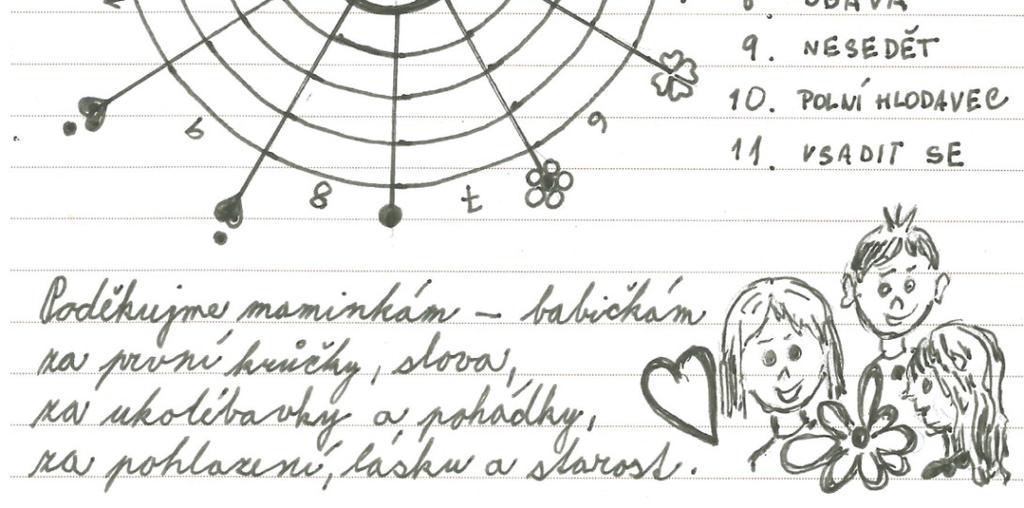 8. OBAVA
9. NESEDĚT
10. POLNÍ HLODAVEC
11. VSADIT SE
6
9
8
7
Poděkujme maminkám – babičkám
za první krůčky, slova,
za ukolébavky a pohádky,
za pohlazení, lásku a starost.